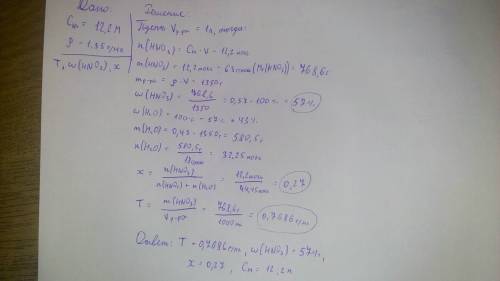 Дано:
Cм = 12,2 М
ρ - 1.35 г/мл
T, ω(HNO₃), x
Решение:
Пусть Vр-ра = 1л, тогда:
n(HNO₃) = Cм · V = 12,2 моль
m(HNO₃) = 12,2 моль · 63 г/моль (Mr(HNO₃)) = 768,6 г
mр-ра = ρ · V = 1350 г
ω(HNO₃) = 768,6 / 1350 = 0,57 · 100% = 57%
ω(H₂O) = 100% - 57% = 43%
m(H₂O) = 0,43 · 1350 г = 580,5 г
n(H₂O) = 580,5 г / 18 г/моль = 32,25 моль
x = n(HNO₃) / n(HNO₃) + n(H₂O) = 12,2 моль / 44,45 моль = 0,27
T = m(HNO₃) / Vр-ра = 768,6 г / 1000 мл = 0,7686 г/мл
Ответ: T = 0,7686 г/мл, ω(HNO₃) = 57%,
x = 0,27, Cм = 12,2 М